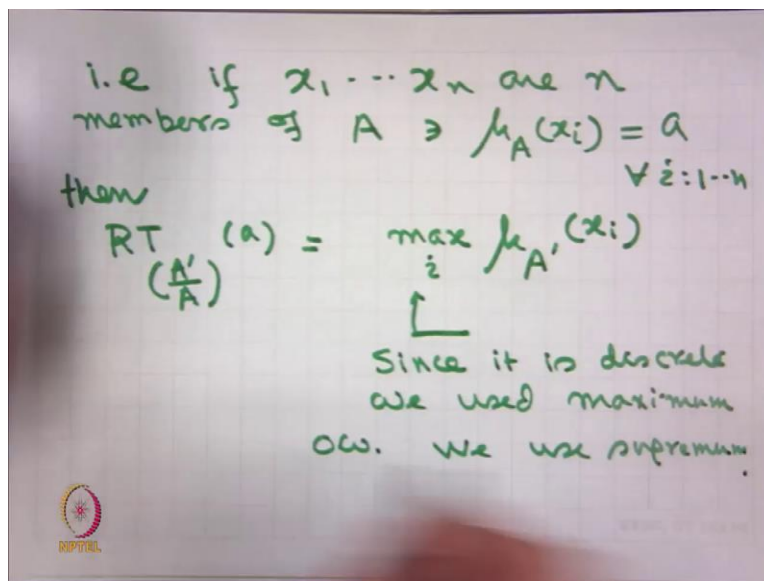 i.e if x₁ ⋯ xₙ are n
members of A ∋ μ_A(xᵢ) = a
∀ i : 1 ‐‐ n
then
RT_(A'/A) (a) = max_i μ_A'(xᵢ)
Since it is discrete
we used maximum
ow. We use supremum.
NPTEL